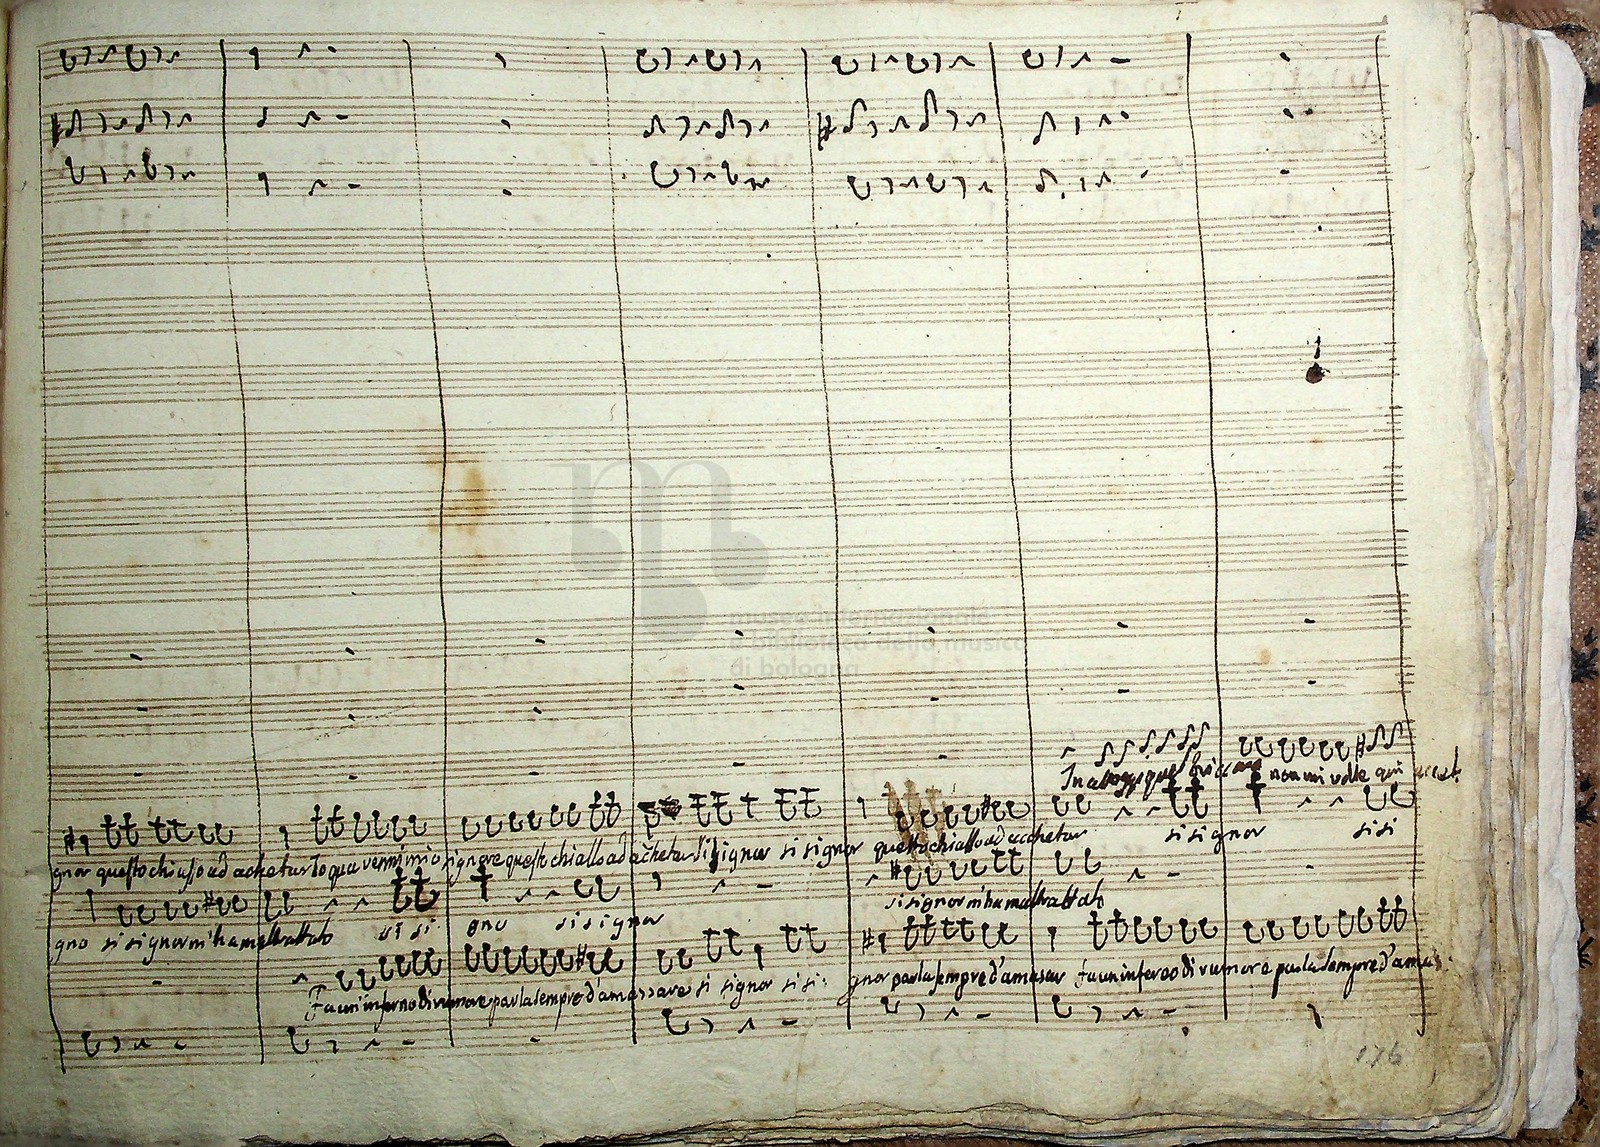 museo internazionale
e biblioteca della musica
di bologna
non mi volle qui
si si gnor si si
gnor questo chiasso ad achetar Io qua venni mio signore questo chiasso ad achetar si signor si signor questo chiasso ad acchetar
si signor m'ha maltrattato
gno si signor m'ha maltrattato si si gno si si gnor
fa un inferno di rumore parla sempre d'amazzare si signor si si gnor parla sempre d'amasar fa un inferno di rumore parla sempre d'amas
176